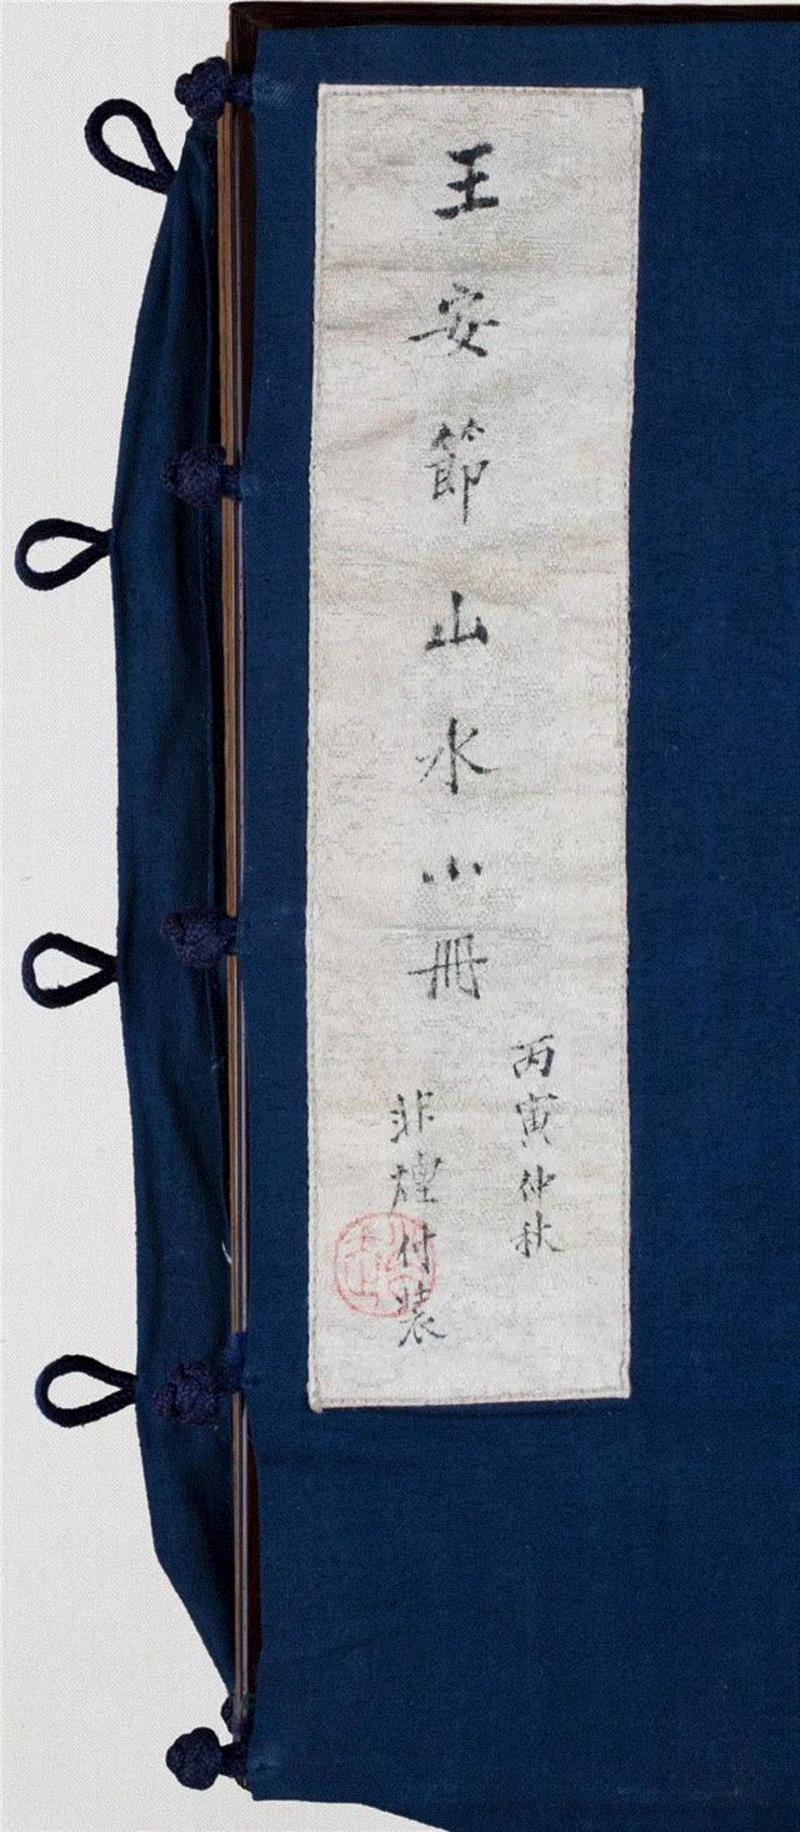 王安節山水小冊
丙寅仲秋
非煌付装